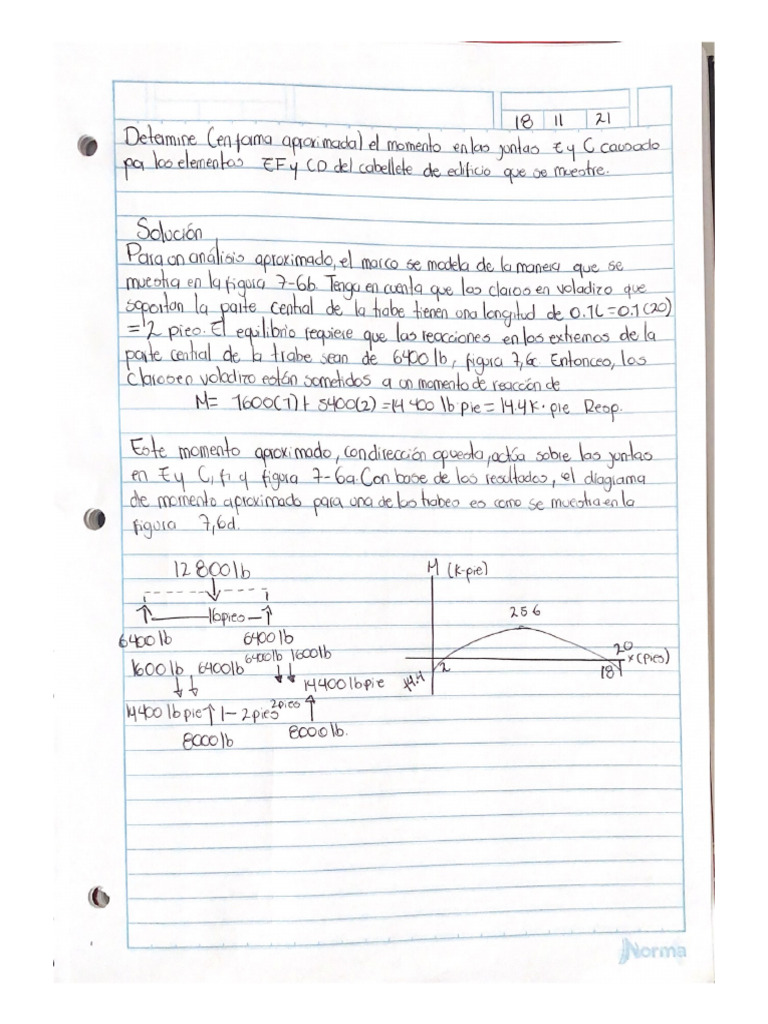 18 11 21
Determine (en forma aproximada) el momento en las juntas E y C causado
por los elementos EF y CD del cabellete de edificio que se muestre.
Solución
Para un análisis aproximado, el marco se modela de la manera que se
muestra en la figura 7-6b. Tenga en cuenta que los claros en voladizo que
soportan la parte central de la trabe tienen una longitud de 0.1L=0.1(20)
= 2 pies. El equilibrio requiere que las reacciones en los extremos de la
parte central de la trabe sean de 6400 lb, figura 7,6c. Entonces, los
claros en voladizo están sometidos a un momento de reacción de
M= 1600(1)+ 5400(2)=14 400 lb·pie = 14.4 K·pie Resp.
Este momento aproximado, con dirección opuesta, actúa sobre las juntas
en E y C, f, y figura 7-6a. Con base de los resultados, el diagrama
de momento aproximado para una de las trabes es como se muestra en la
figura 7,6d.
12 800 lb
16 pies
6400 lb 6400 lb
1600 lb 6400 lb 6400 lb 1600 lb
14400 lb pie
14400 lb pie 1-2 pies 2 pies
8000 lb 8000 lb.
M (K-pie)
256
20
x (pies)
2
18
14.4
Norma